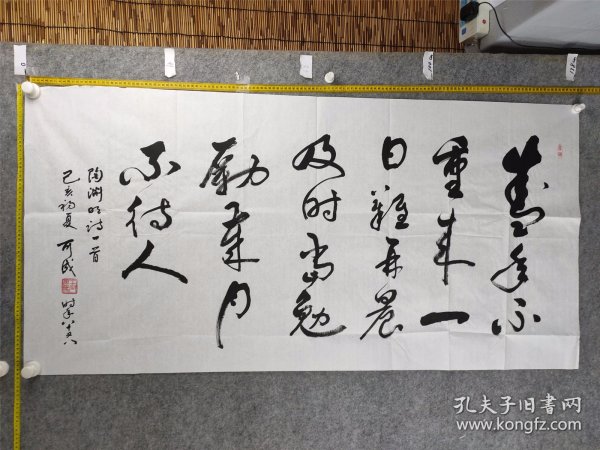 盛年不
重来一
日難再晨
及时当勉
勵歲月
不待人
陶渊明诗一首
己亥初夏 可成 时年八十又八
孔夫子旧书网
www.kongfz.com